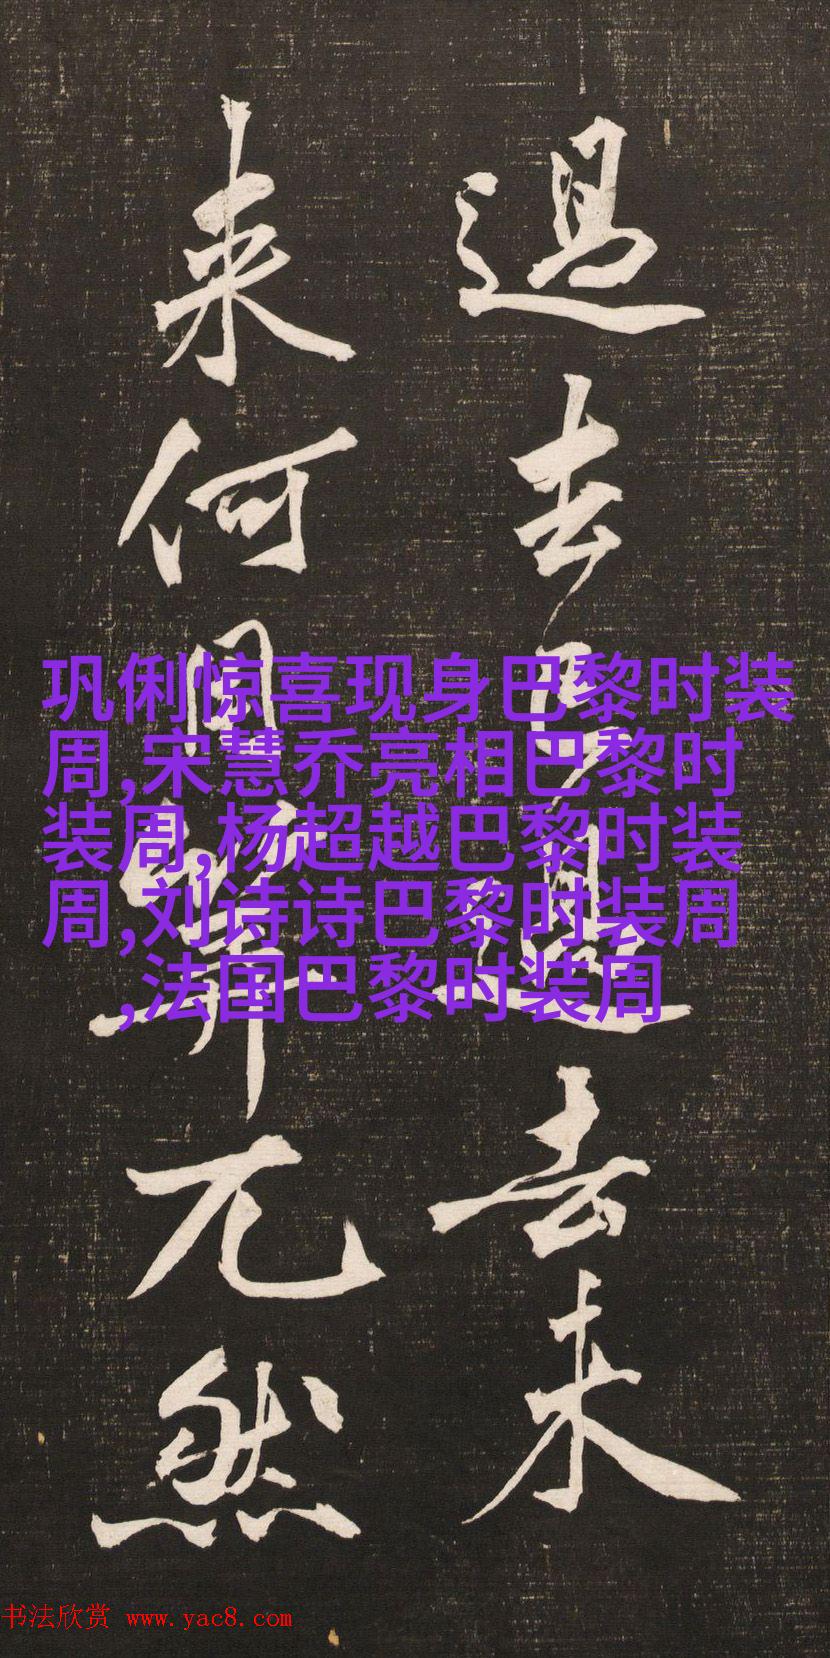 過去已過去未
来何用算兀然
巩俐惊喜现身巴黎时装
周,宋慧乔亮相巴黎时
装周,杨超越巴黎时装
周,刘诗诗巴黎时装周
,法国巴黎时装周
书法欣赏 www.yac8.com